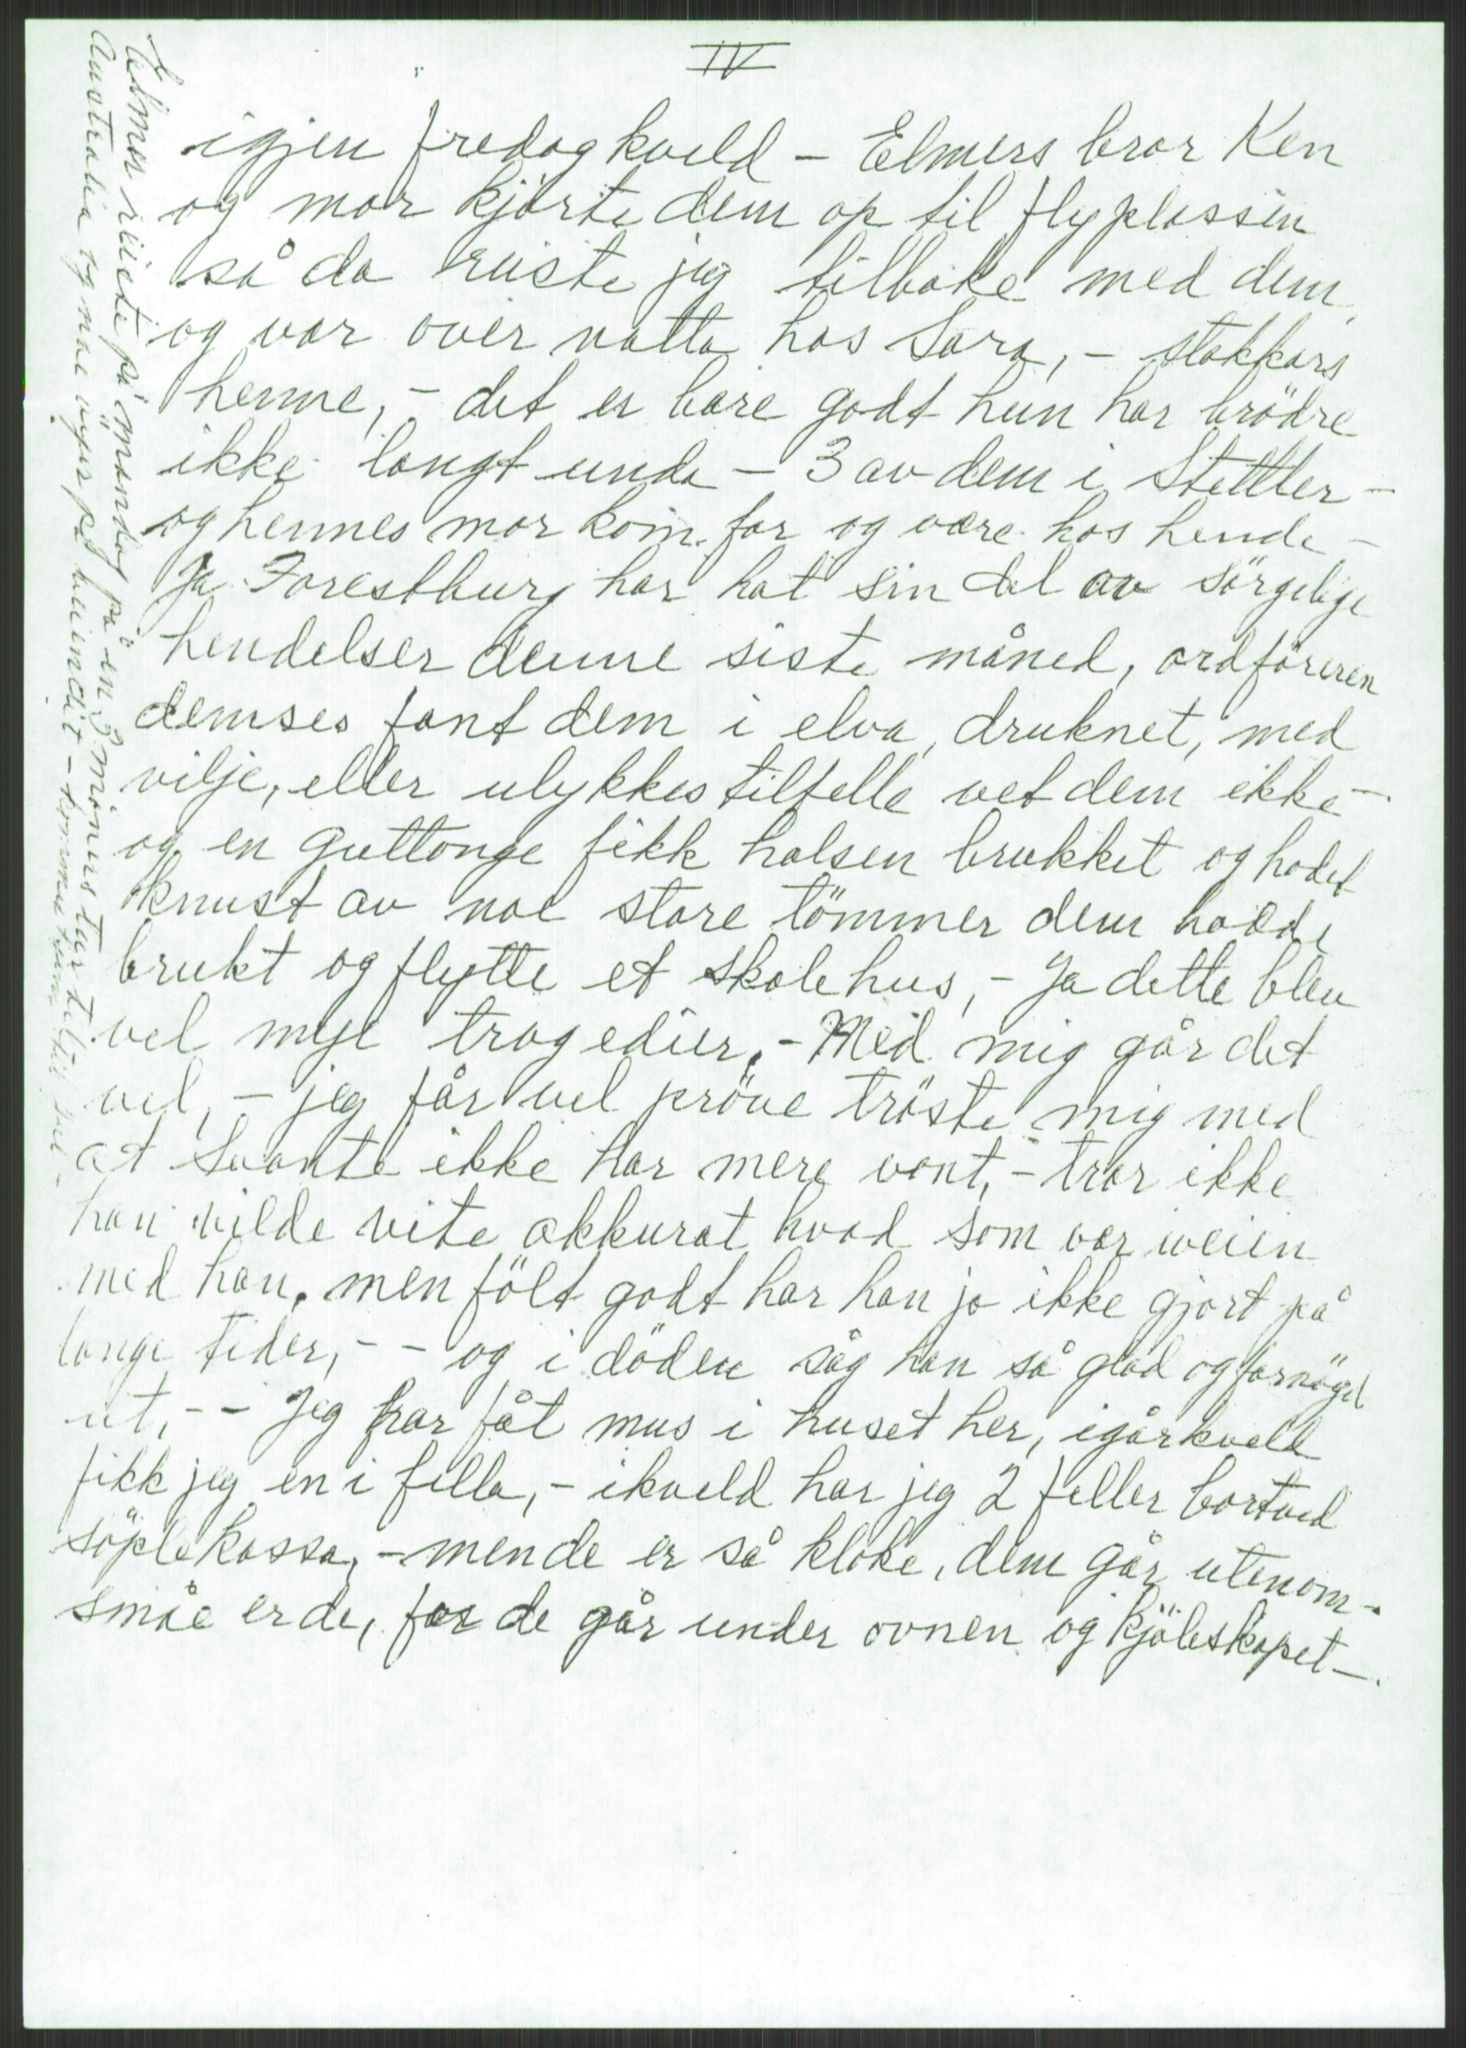 IV
igjen fredag kveld - Elmers bror Ken
og mor kjørte dem op til flyplassen
så da reiste jeg tilbake med dem,
og var over natta hos Sara, - stakkars
henne, - det er bare godt hun har brödre
ikke langt unda - 3 av dem i Stettler -
og hennes mor kom for og være hos hende -
Ja Forestburg har hat sin del av sörgelige
hendelser denne siste måned, ordföreren
demses fant dem i elva, druknet, med
vilje, eller ulykkestilfelle vet dem ikke -
og en guttonge fikk halsen brukket og hodet
knust av noe store tömmer dem hadde
brukt og flytte et skolehus, - Ja dette blev
vel mye tragedier. - Med mig går det
vel, - jeg får vel pröve tröste mig med
at Svante ikke har mere vont, - tror ikke
han vilde vite akkurat hvad som var iveien
med han, men fölt godt har han jo ikke gjort på
lange tider, - - og i döden såg han så glad og fornöged
ut, - - Jeg har fåt mus i huset her, igårkveld
fikk jeg en i fella, - ikveld har jeg 2 feller bortved
söplekassa, - men de er så kloke, dem går utenom -
småe er de, for de går under ovnen og kjöleskapet -
Elmer reiste på mandag på en 3 måners tur til
Australia og noe øyer på veien dit - kommer hjem til jul -